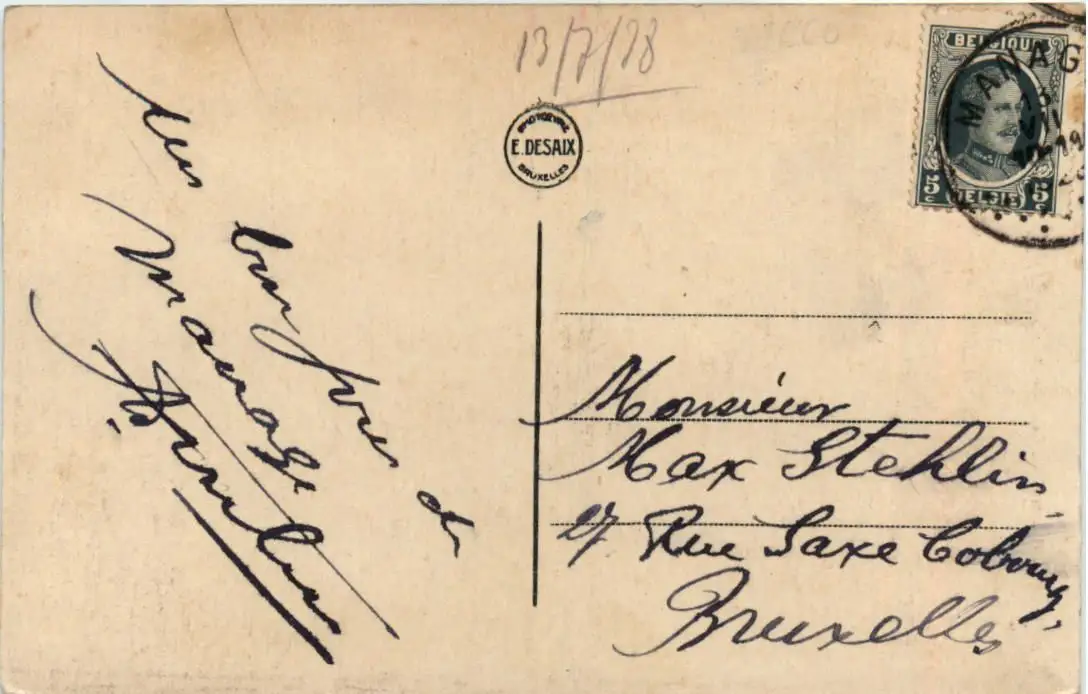 13/7/28
PHOTOEUVRE
E. DESAIX
BRUXELLES
BELGIQUE
5c 5c
BELGIË
MANAG
13
VII
28
Un bonjour de
Manage
Monsieur
Max Stehlin
27 Rue Saxe Cobourg,
Bruxelles